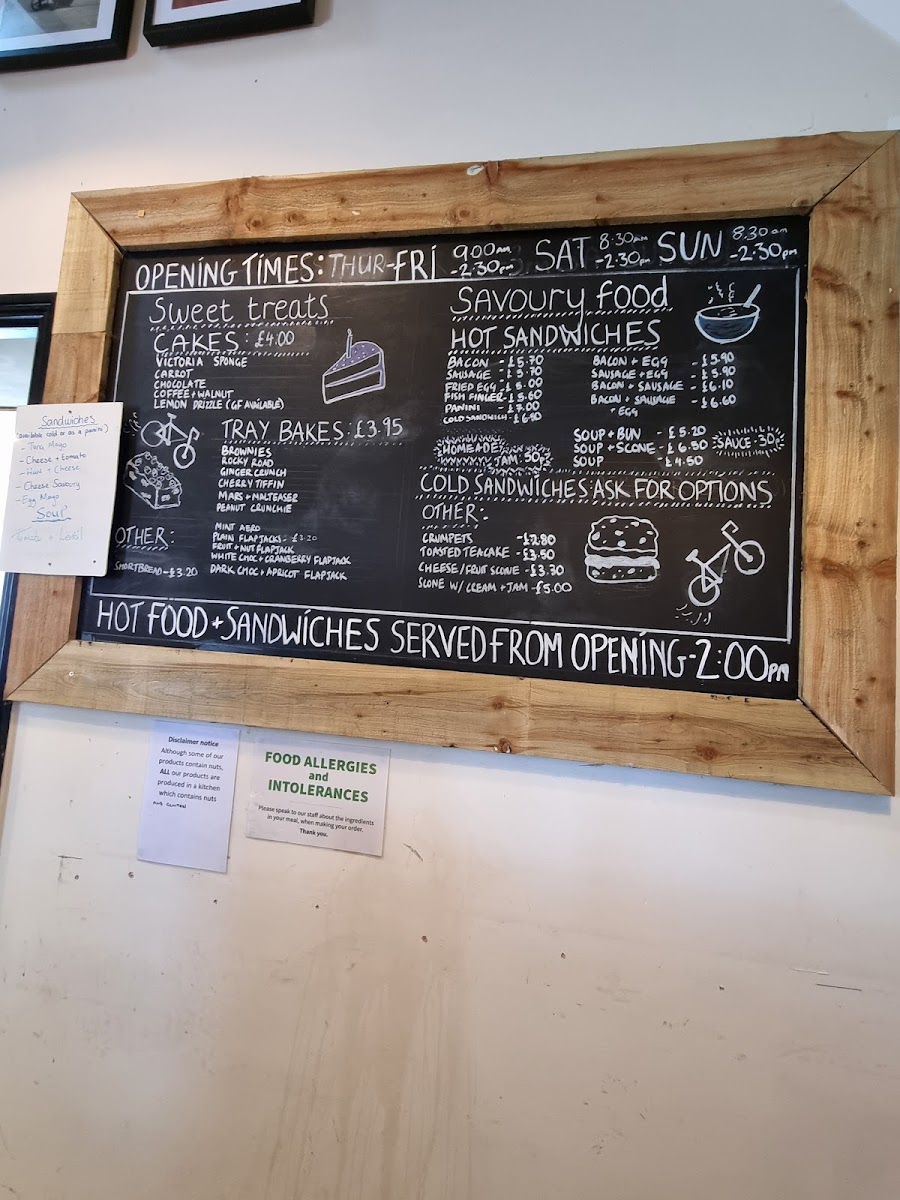 OPENING TIMES: THUR-FRI 9.00am -2.30pm SAT 8:30am -2:30pm SUN 8.30am -2:30pm
Sweet treats
CAKES: £4.00
VICTORIA SPONGE
CARROT
CHOCOLATE
COFFEE+WALNUT
LEMON DRIZZLE (GF AVAILABLE)
TRAY BAKES: £3.95
BROWNIES
ROCKY ROAD
GINGER CRUNCH
CHERRY TIFFIN
MARS + MALTEASER
PEANUT CRUNCHIE
MINT AERO
PLAIN FLAPJACKS - £3.20
FRUIT + NUT FLAPJACK
WHITE CHOC + CRANBERRY FLAPJACK
DARK CHOC + APRICOT FLAPJACK
OTHER:
SHORTBREAD - £3.20
Savoury food
HOT SANDWICHES
BACON - £5.70
SAUSAGE - £5.70
FRIED EGG - £5.00
FISH FINGER - £5.60
PANINI - £7.00
COLD SANDWICH - £6.50
BACON + EGG - £5.90
SAUSAGE + EGG - £5.90
BACON + SAUSAGE - £6.10
BACON + SAUSAGE - £6.60
+ EGG
HOMEMADE
JAM - 50p
SOUP + BUN - £5.20
SOUP + SCONE - £6.50
SOUP £4.50
SAUCE - 30p
COLD SANDWICHES: ASK FOR OPTIONS
OTHER:
CRUMPETS - £2.80
TOASTED TEACAKE - £3.50
CHEESE/FRUIT SCONE - £3.30
SCONE W/ CREAM + JAM - £5.00
HOT FOOD + SANDWICHES SERVED FROM OPENING - 2:00pm
Sandwiches
(available cold or as a panini)
- Tuna Mayo
- Cheese + tomato
- Ham + Cheese
- Cheese Savoury
- Egg Mayo
Soup
Tomato +
Disclaimer notice
Although some of our
products contain nuts,
ALL our products are
produced in a kitchen
which contains nuts
AND GLUTEN
FOOD ALLERGIES
and
INTOLERANCES
Please speak to our staff about the ingredients
in your meal, when making your order.
Thank you.